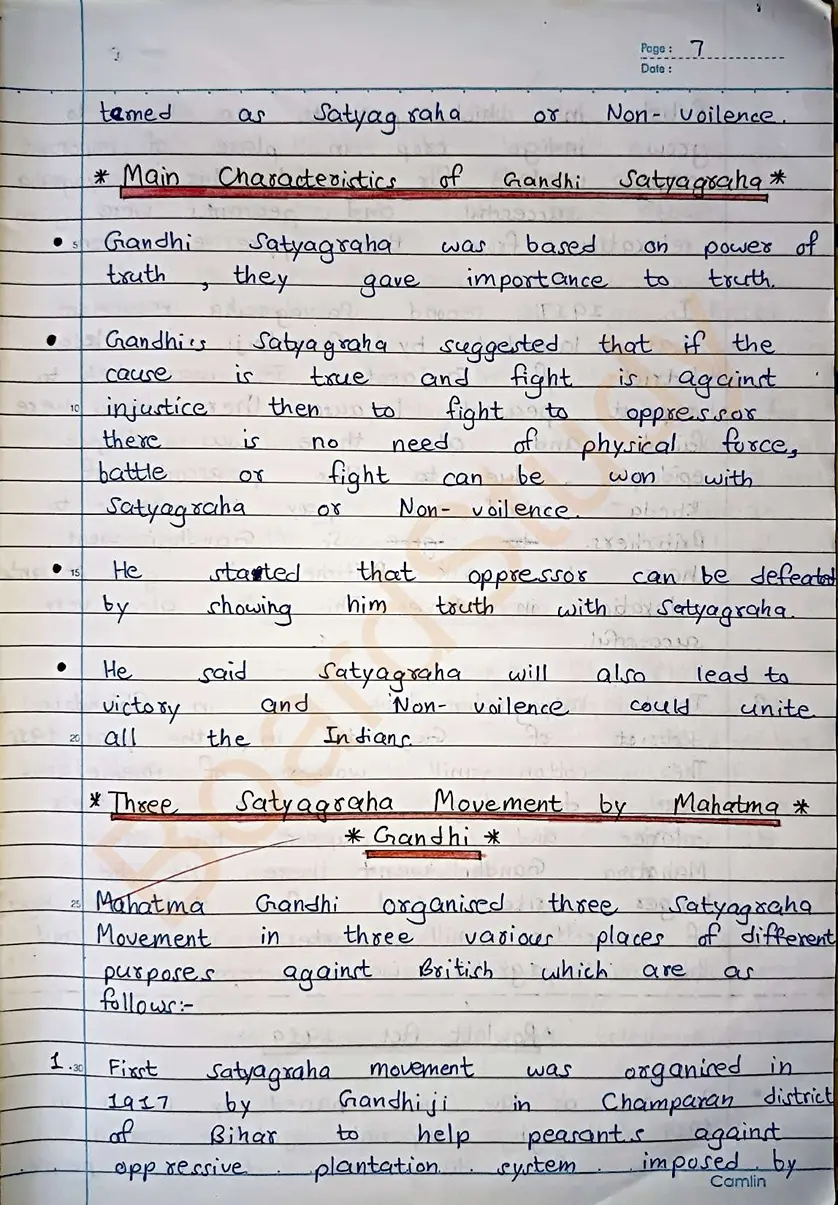 Page: 7
Date:
temed as Satyagraha or Non-voilence.
* Main Characteristics of Gandhi Satyagraha *
• 5 Gandhi Satyagraha was based on power of
truth, they gave importance to truth.
• Gandhi's Satyagraha suggested that if the
cause is true and fight is against
10 injustice then to fight to oppressor
there is no need of physical force,
battle or fight can be won with
Satyagraha or Non-voilence.
• 15 He started that oppressor can be defeated
by showing him truth with Satyagraha.
• He said Satyagraha will also lead to
victory and Non-voilence could unite
20 all the Indians.
* Three Satyagraha Movement by Mahatma *
* Gandhi *
25 Mahatma Gandhi organised three Satyagraha
Movement in three various places of different
purposes against British which are as
follows:-
1. 30 First Satyagraha movement was organised in
1917 by Gandhiji in Champaran district
of Bihar to help peasants against
oppressive plantation system imposed by
Camlin
BoardSway